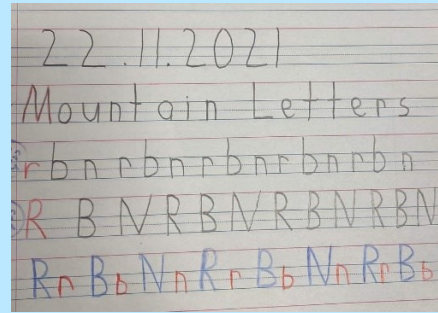 22.11.2021
Mountain Letters
r b n r b n r b n r b n r b n
R B N R B N R B N R B N
R r B b N n R r B b N n R r B b